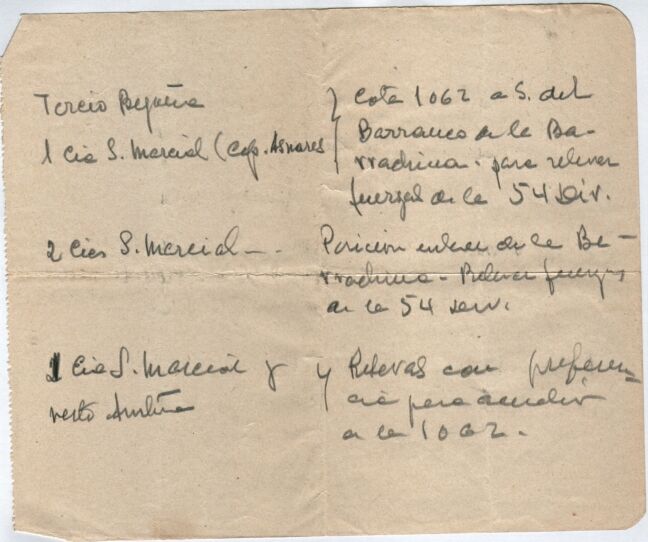 Tercio Begoña
1 Cia S. Marcial (Cap. Asnares
Cota 1062 a S. del
Barranco de la Ba-
rrachina - para relevar
fuerzas de la 54 Div.
2 Cies S. Marcial - -
Posicion de la Ba-
rrachina - Relevar fuerzas
de la 54 Div.
1 Cia S. Marcial y
resto
y Reservas con preferen-
cia para acudir
a la 1062.